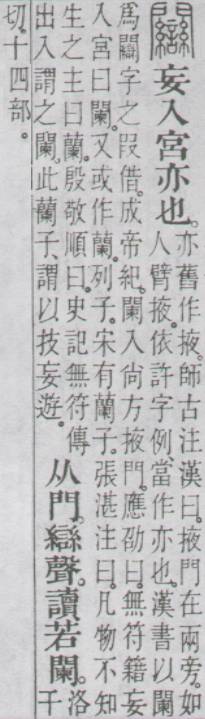 𨷻
妄入宮亦也。
亦舊作掖。師古注漢曰。掖門在兩旁。如
人臂掖。依許字例。當作亦也。漢書以闌
爲𨷻字之叚借。成帝紀。闌入尙方掖門。應劭曰。無符籍妄
入宮曰闌。又或作蘭。列子。宋有蘭子。張湛注曰。凡物不知
生之主曰蘭。殷敬順曰。史記無符傳
出入謂之闌。此蘭子、謂以技妄遊。
从門。䜌聲。讀若闌。
洛
干
切。十四部。